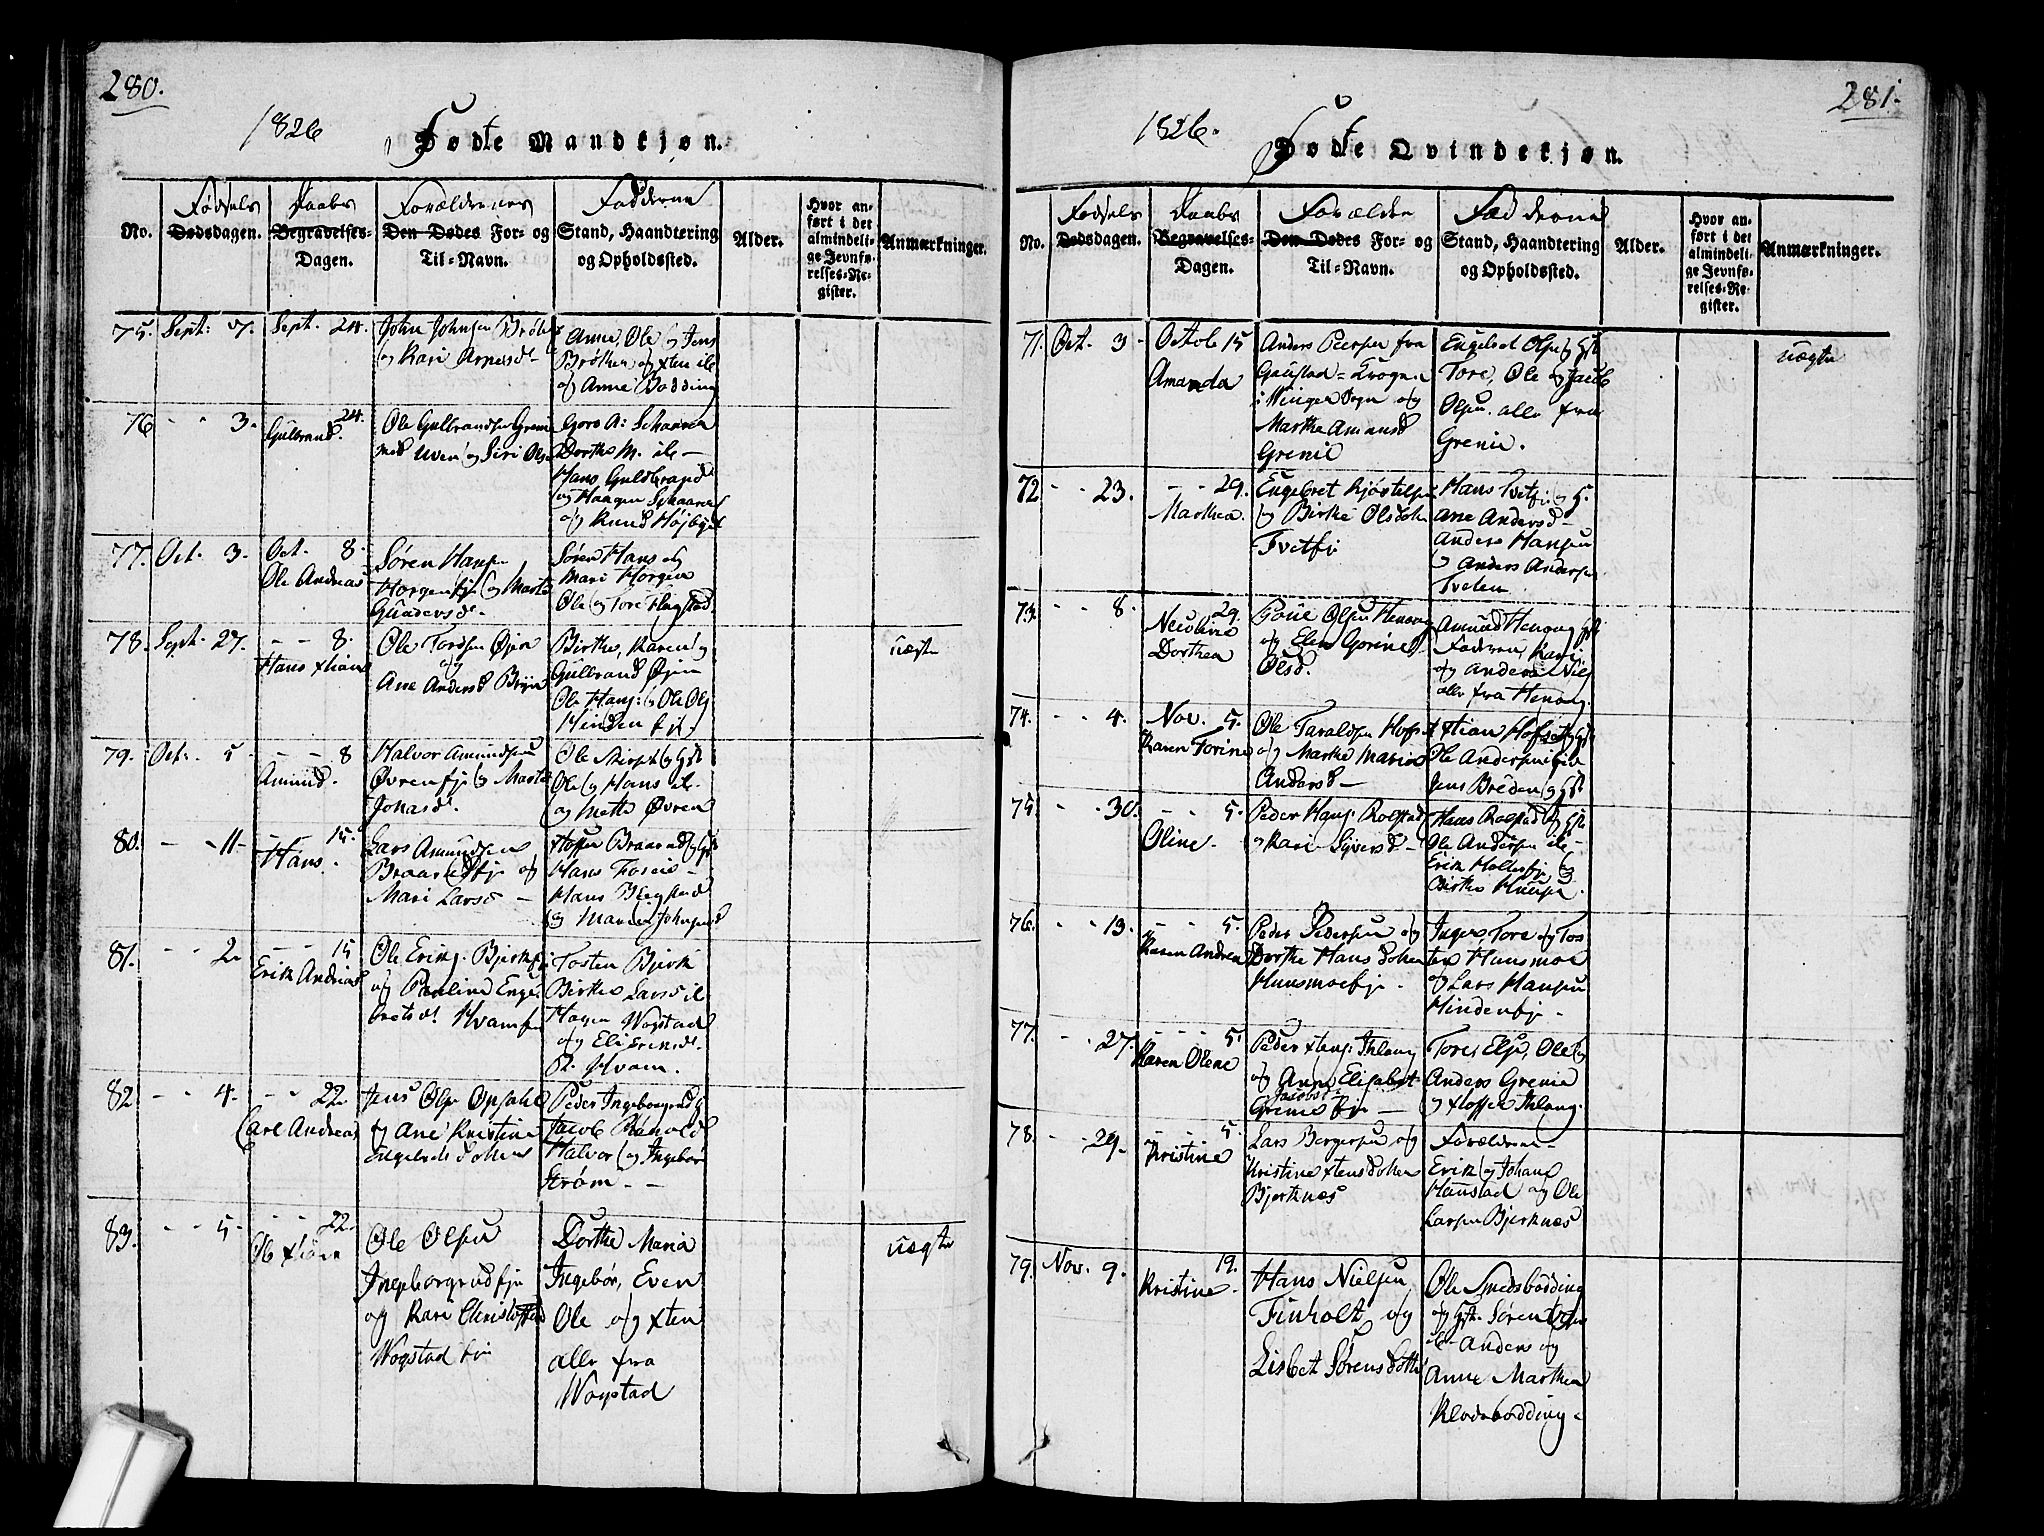 280.
1826
Fødte Mandkjøn.
No.
Fødsels
Dødsdagen.
Daabs
Begravelses-
Dagen.
Forældrenes
Den Dødes For- og
Til-Navn.
Faddernes
Stand, Haandtering
og Opholdssted.
Alder.
Hvor an-
ført i det
almindeli-
ge Jevnfø-
relses-Re-
gister.
Anmærkninger.
75. Sept: 7. Sept. 24
John Johnsen
og Kari Arnesd-
Anne, Ole og Jens
Brøthen og xten ile
og Anne Bødding
76 - " 3. 24.
Gulbrand.
Ole Gulbrandsen Grenie
med Uven og Siri Olsd
Goro A: Schaaren
Dorthe M. ile -
Hans Guldbrand
og Haagen Schaaren
og Knud Højbye
77. Oct. 3. Oct. 8.
Ole Andreas
Søren Hansen
Horgenfje og Marte
Gundersd-
Søren Hans og
Mari Horgen
Ole og Tore Flagstad
78. Sept. 27. - - 8.
Hans xtian
Ole Torsten Øjen
og
Ane Andersd Bryn
Birthe, Karen og
Gulbrand Øjen
Ole Hans: og Ole Ols
Hinden fje.
uægte
79. Oct. 5 - - - 8
Amund.
Halvor Amundsen
Øvrenfje og Marte
Jonasd.
Ole og Hans ile.
og Mette Øvren
80. - - 11 - - 15.
Hans.
Lars Amundsen
Braarudfje og
Mari Larsd -
xtoffer Braarud og Gst
Hans
Hans
og Maren Johnsend
81. - - 2 - - 15
Erik Andreas
Ole Eriks. Bjerkfje
og Pauline Enge-
bretsd. Hvamfje
Tosten Bjerk
Birthe Larsd ile
Hagen Wogstad
og Eli Eriksd.
P. Hvam.
82 - - 4. - - 22.
Carl Andreas
Jens Olsen Opsahl
og Ane Kristine
Engebretsdohter
Peder Ingeborgrud og
Jacob
Halvor og Ingebor
Strøm - -
83. - - 5 - - - 22.
Ole xtian
Ole Olsen
Ingeborgrudfje
og Kari Christoffersd
Wogstad fje
Dorthe Maria
Ingebor, Even
Ole og xten
alle fra
Wogstad
uægte
281.
1826.
Fødte Qvindekjøn.
No.
Fødsels
Dødsdagen.
Daabs
Begravelses-
Dagen.
Forælder
Den Dødes For- og
Til-Navn.
Faddernes
Stand, Haandtering
og Opholdssted.
Alder.
Hvor an-
ført i det
almindeli-
ge Jevnfø-
relses-Re-
gister.
Anmærkninger.
71. Oct. 3 - Octob 15
Amanda
Anders Peersen fra
Gaustad
i Winger Sogn og
Marthe Amunsd
Grenie
Engebret Olsen og Gst
Tore, Ole og Jacob
Olsen. alle fra
Grenie.
uægte
72 - - 23. - - 29.
Marthea.
Engebret Kjøstelsen
og Birthe Olsdohter
Tvetfje
Hans Tvetfje og G.
Ane Andersd-
Anders Hansen
og Anders Andersen
Tveten.
73. - - 8 29.
Dorthea
Olsen Henong
og Elen Gorine
Olsd.
Amund Henong og Gst
Faderen, Kari
og Anders Nils
alle fra Henong.
74. - - 4. Nov. 5.
Karen Torine
Ole Taraldsen Hofset
og Marthe Marie
Andersd -
xtian Hofset og Gst
Ole Andersen
Jens Breden og Gst
75 - - 30. - - 5.
Oline -
Peder Hans: Rolstad
og Kari Syversd -
Hans Rolstad og Gst
Ole Andersen ile -
Erik og
Birthe
76. - - 13. - - 5.
Karen Andrea
Peder Pedersen og
Dorthe Hansdohter
Hunsmoefje -
Inger Tore og Tos-
ten Hunsmoe
og Lars Hansen
Hindenfje -
77. - - 27. - - - 5.
Karen Olene
Peder xtens: Ihlang
og Anne Elisabet
Jacobsd
Grenie fje -
Tore Else, Ole og
Anders Grenie
og xtoffer Ihlang.
78. - - 29. - - 5.
Kristine
Lars Bergersen og
Kristine xtensdohter
Bjerknæs
Forældrene -
Erik og Johans
Haustad og Ole
Larsen Bjerknæs
79. Nov. 9. 19.
Kristine -
Hans Nielsen
Finholt og
Lisbet Sørensdotter
Ole Smedsbødding
og Gst. Søren
ile - Anders og
Anne Marthea
Klodsbødding -